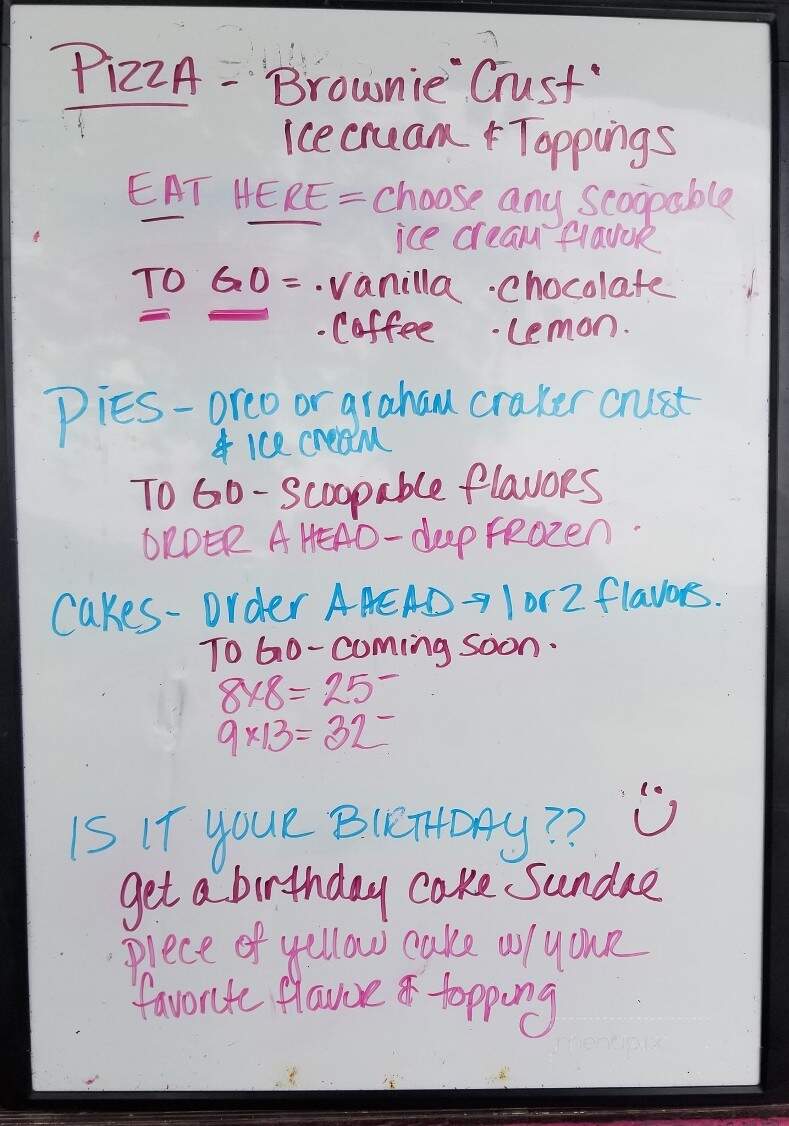 PIZZA - Brownie "Crust"
Ice cream & Toppings
EAT HERE = choose any scoopable
ice cream flavor
TO GO = • vanilla • chocolate
• Coffee • Lemon.
PIES - Oreo or graham craker crust
& Ice cream
TO GO - Scoopable flavors
ORDER AHEAD - deep FROZEN .
Cakes - Order AHEAD → 1 or 2 flavors.
TO GO - coming soon.
8x8 = 25-
9x13 = 32-
IS IT YOUR BIRTHDAY ??
get a birthday cake Sundae
piece of yellow cake w/ your
favorite flavor & topping
menupix